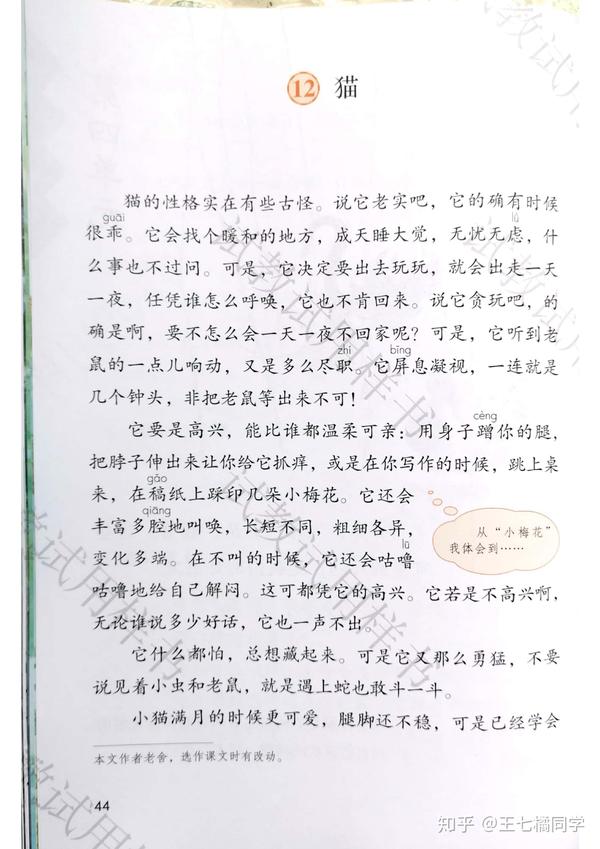 12 猫
猫的性格实在有些古怪。说它老实吧，它的确有时候
guāi lǜ
很乖。它会找个暖和的地方，成天睡大觉，无忧无虑，什
么事也不过问。可是，它决定要出去玩玩，就会出走一天
一夜，任凭谁怎么呼唤，它也不肯回来。说它贪玩吧，的
确是啊，要不怎么会一天一夜不回家呢？可是，它听到老
zhí bǐng
鼠的一点儿响动，又是多么尽职。它屏息凝视，一连就是
几个钟头，非把老鼠等出来不可！
cèng
它要是高兴，能比谁都温柔可亲：用身子蹭你的腿，
把脖子伸出来让你给它抓痒，或是在你写作的时候，跳上桌
gǎo
来，在稿纸上踩印几朵小梅花。它还会
qiāng
丰富多腔地叫唤，长短不同，粗细各异，
lū
变化多端。在不叫的时候，它还会咕噜
咕噜地给自己解闷。这可都凭它的高兴。它若是不高兴啊，
无论谁说多少好话，它也一声不出。
从“小梅花”
我体会到……
它什么都怕，总想藏起来。可是它又那么勇猛，不要
说见着小虫和老鼠，就是遇上蛇也敢斗一斗。
小猫满月的时候更可爱，腿脚还不稳，可是已经学会
本文作者老舍，选作课文时有改动。
44
试教试用样书
试教试用样书
知乎 @王七橘同学